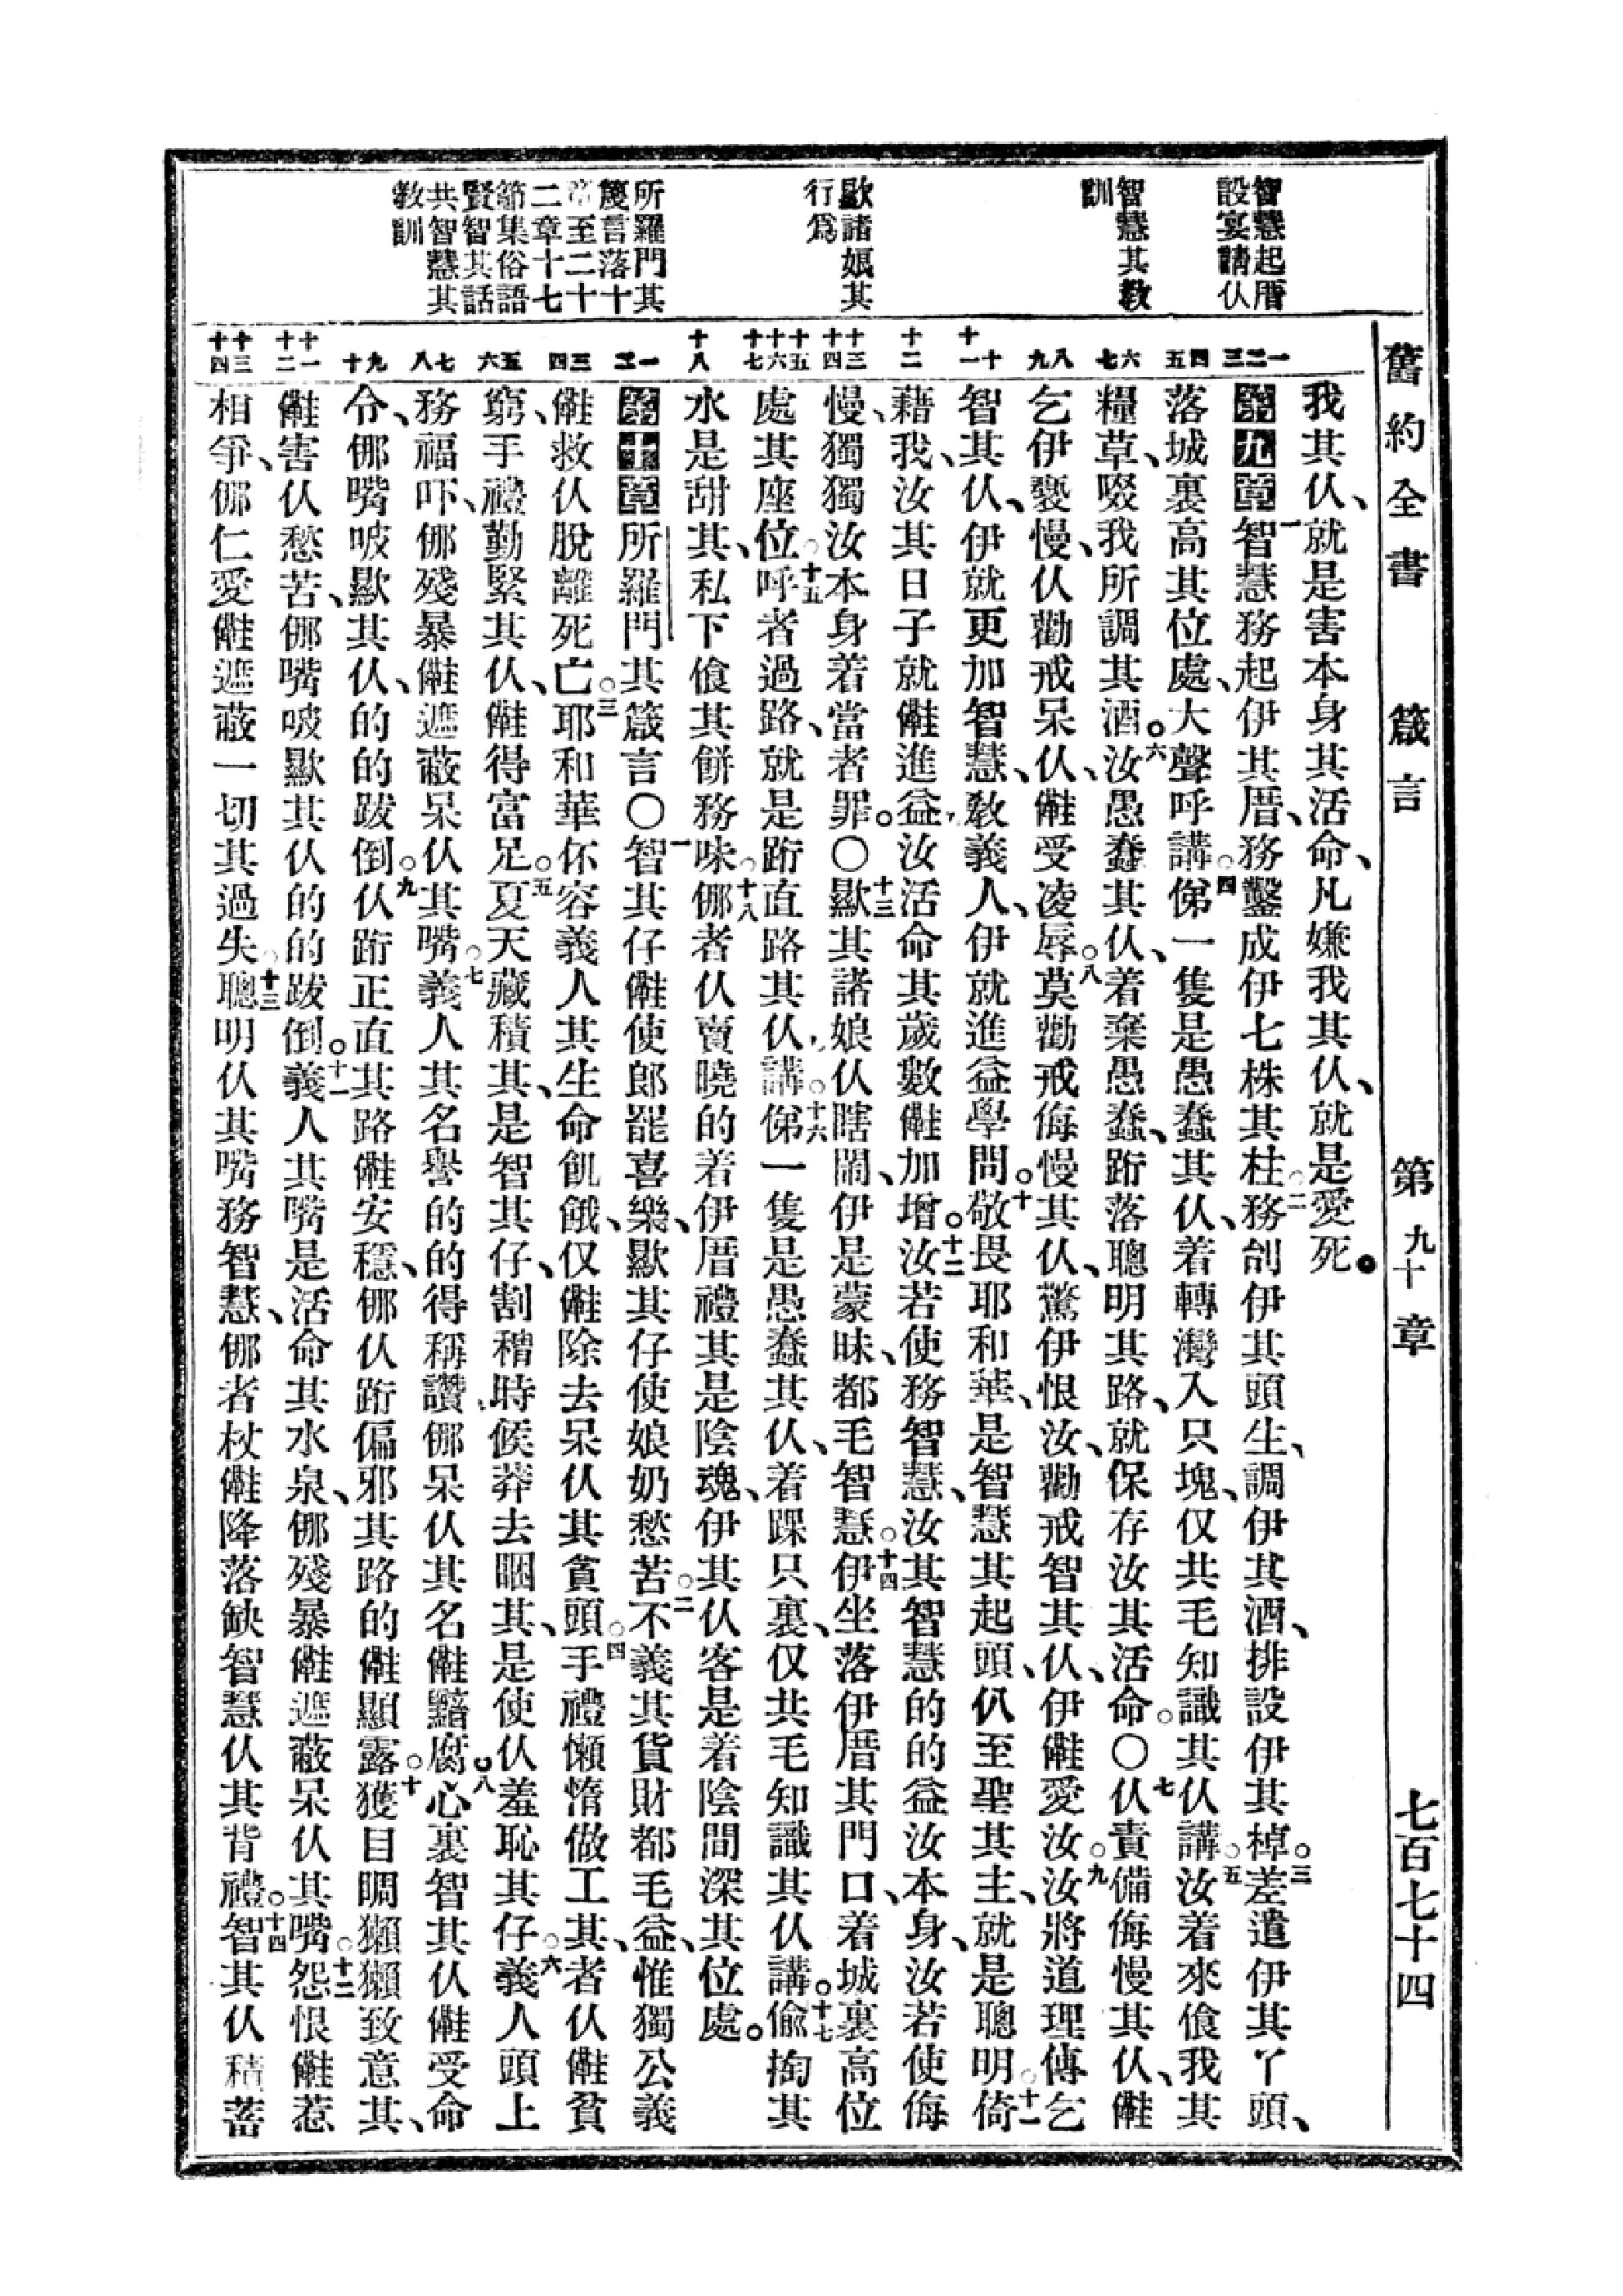 舊約全書　箴言　第九十章　七百七十四
智慧起厝
設宴請仈
智慧其教
訓
歞諸娘其
行爲
所羅門其
箴言落十
章至二十
二章十七
節集俗語
賢智其話
共智慧其
教訓
一 二 三
四 五
六 七
八 九
十 十一
十二
十三 十四
十五 十六 十七
十八
一 二
三 四
五 六
七 八
九 十
十一 十二
十三 十四
我其仈、就是害本身其活命、凡嫌我其仈、就是愛死。
第九章一智慧務起伊其厝、務鑿成伊七株其柱。二務刣伊其頭生、調伊其酒、排設伊其棹。三差遣伊其丫頭、
落城裏高其位處、大聲呼講。四俤一隻是愚蠢其仈、着轉灣入只塊、仅共毛知識其仈講。五汝着來飡我其
糧草、啜我所調其酒。六汝愚蠢其仈、着棄愚蠢、跻落聰明其路、就保存汝其活命。〇七仈責備侮慢其仈、
乞伊褻慢、仈勸戒呆仈、受凌辱。八莫勸戒侮慢其仈、驚伊恨汝、勸戒智其仈、伊愛汝。九汝將道理傳乞
智其仈、伊就更加智慧、教義人、伊就進益學問。十敬畏耶和華、是智慧其起頭、仈至聖其主、就是聰明。十一倚
藉我、汝其日子就進益、汝活命其歲數加增。十二汝若使務智慧、汝其智慧的的益汝本身、汝若使侮
慢、獨獨汝本身着當者罪。〇十三歞其諸娘仈瞎鬧、伊是蒙昧、都毛智慧。十四伊坐落伊厝其門口、着城裏高位
處其座位。十五呼者過路、就是跻直路其仈、講。十六俤一隻是愚蠢其仈、着踝只裏、仅共毛知識其仈講。十七偸掏其
水是甜其、私下飡其餅務味。十八㑚者仈賣曉的着伊厝禮其是陰魂、伊其仈客是着陰間深其位處。
第十章所羅門其箴言〇一智其仔使郎罷喜樂、歞其仔使娘奶愁苦。二不義其貨財都毛益、惟獨公義
救仈脫離死亡。三耶和華伓容義人其生命飢餓、仅除去呆仈其貪頭。四手禮懶惰做工其、者仈貧
窮、手禮勤緊其仈、得富足。五夏天藏積其、是智其仔、割稽時候莽去睏其、是使仈羞恥其仔。六義人頭上
務福吓、㑚殘暴遮蔽呆仈其嘴。七義人其名譽的的得稱讚、㑚呆仈其名黯腐。八心裏智其仈受命
令、㑚嘴㕷歞其仈、的的跋倒。九仈跻正直其路安穩、㑚仈跻偏邪其路的顯露。十獲目瞯獺獺致意其、
害仈愁苦、㑚嘴㕷歞其仈的的跋倒。十一義人其嘴是活命其水泉、㑚殘暴遮蔽呆仈其嘴。十二怨恨惹
相爭、㑚仁愛遮蔽一切其過失。十三聰明仈其嘴務智慧、㑚者杖降落缺智慧仈其背禮。十四智其仈積蓄